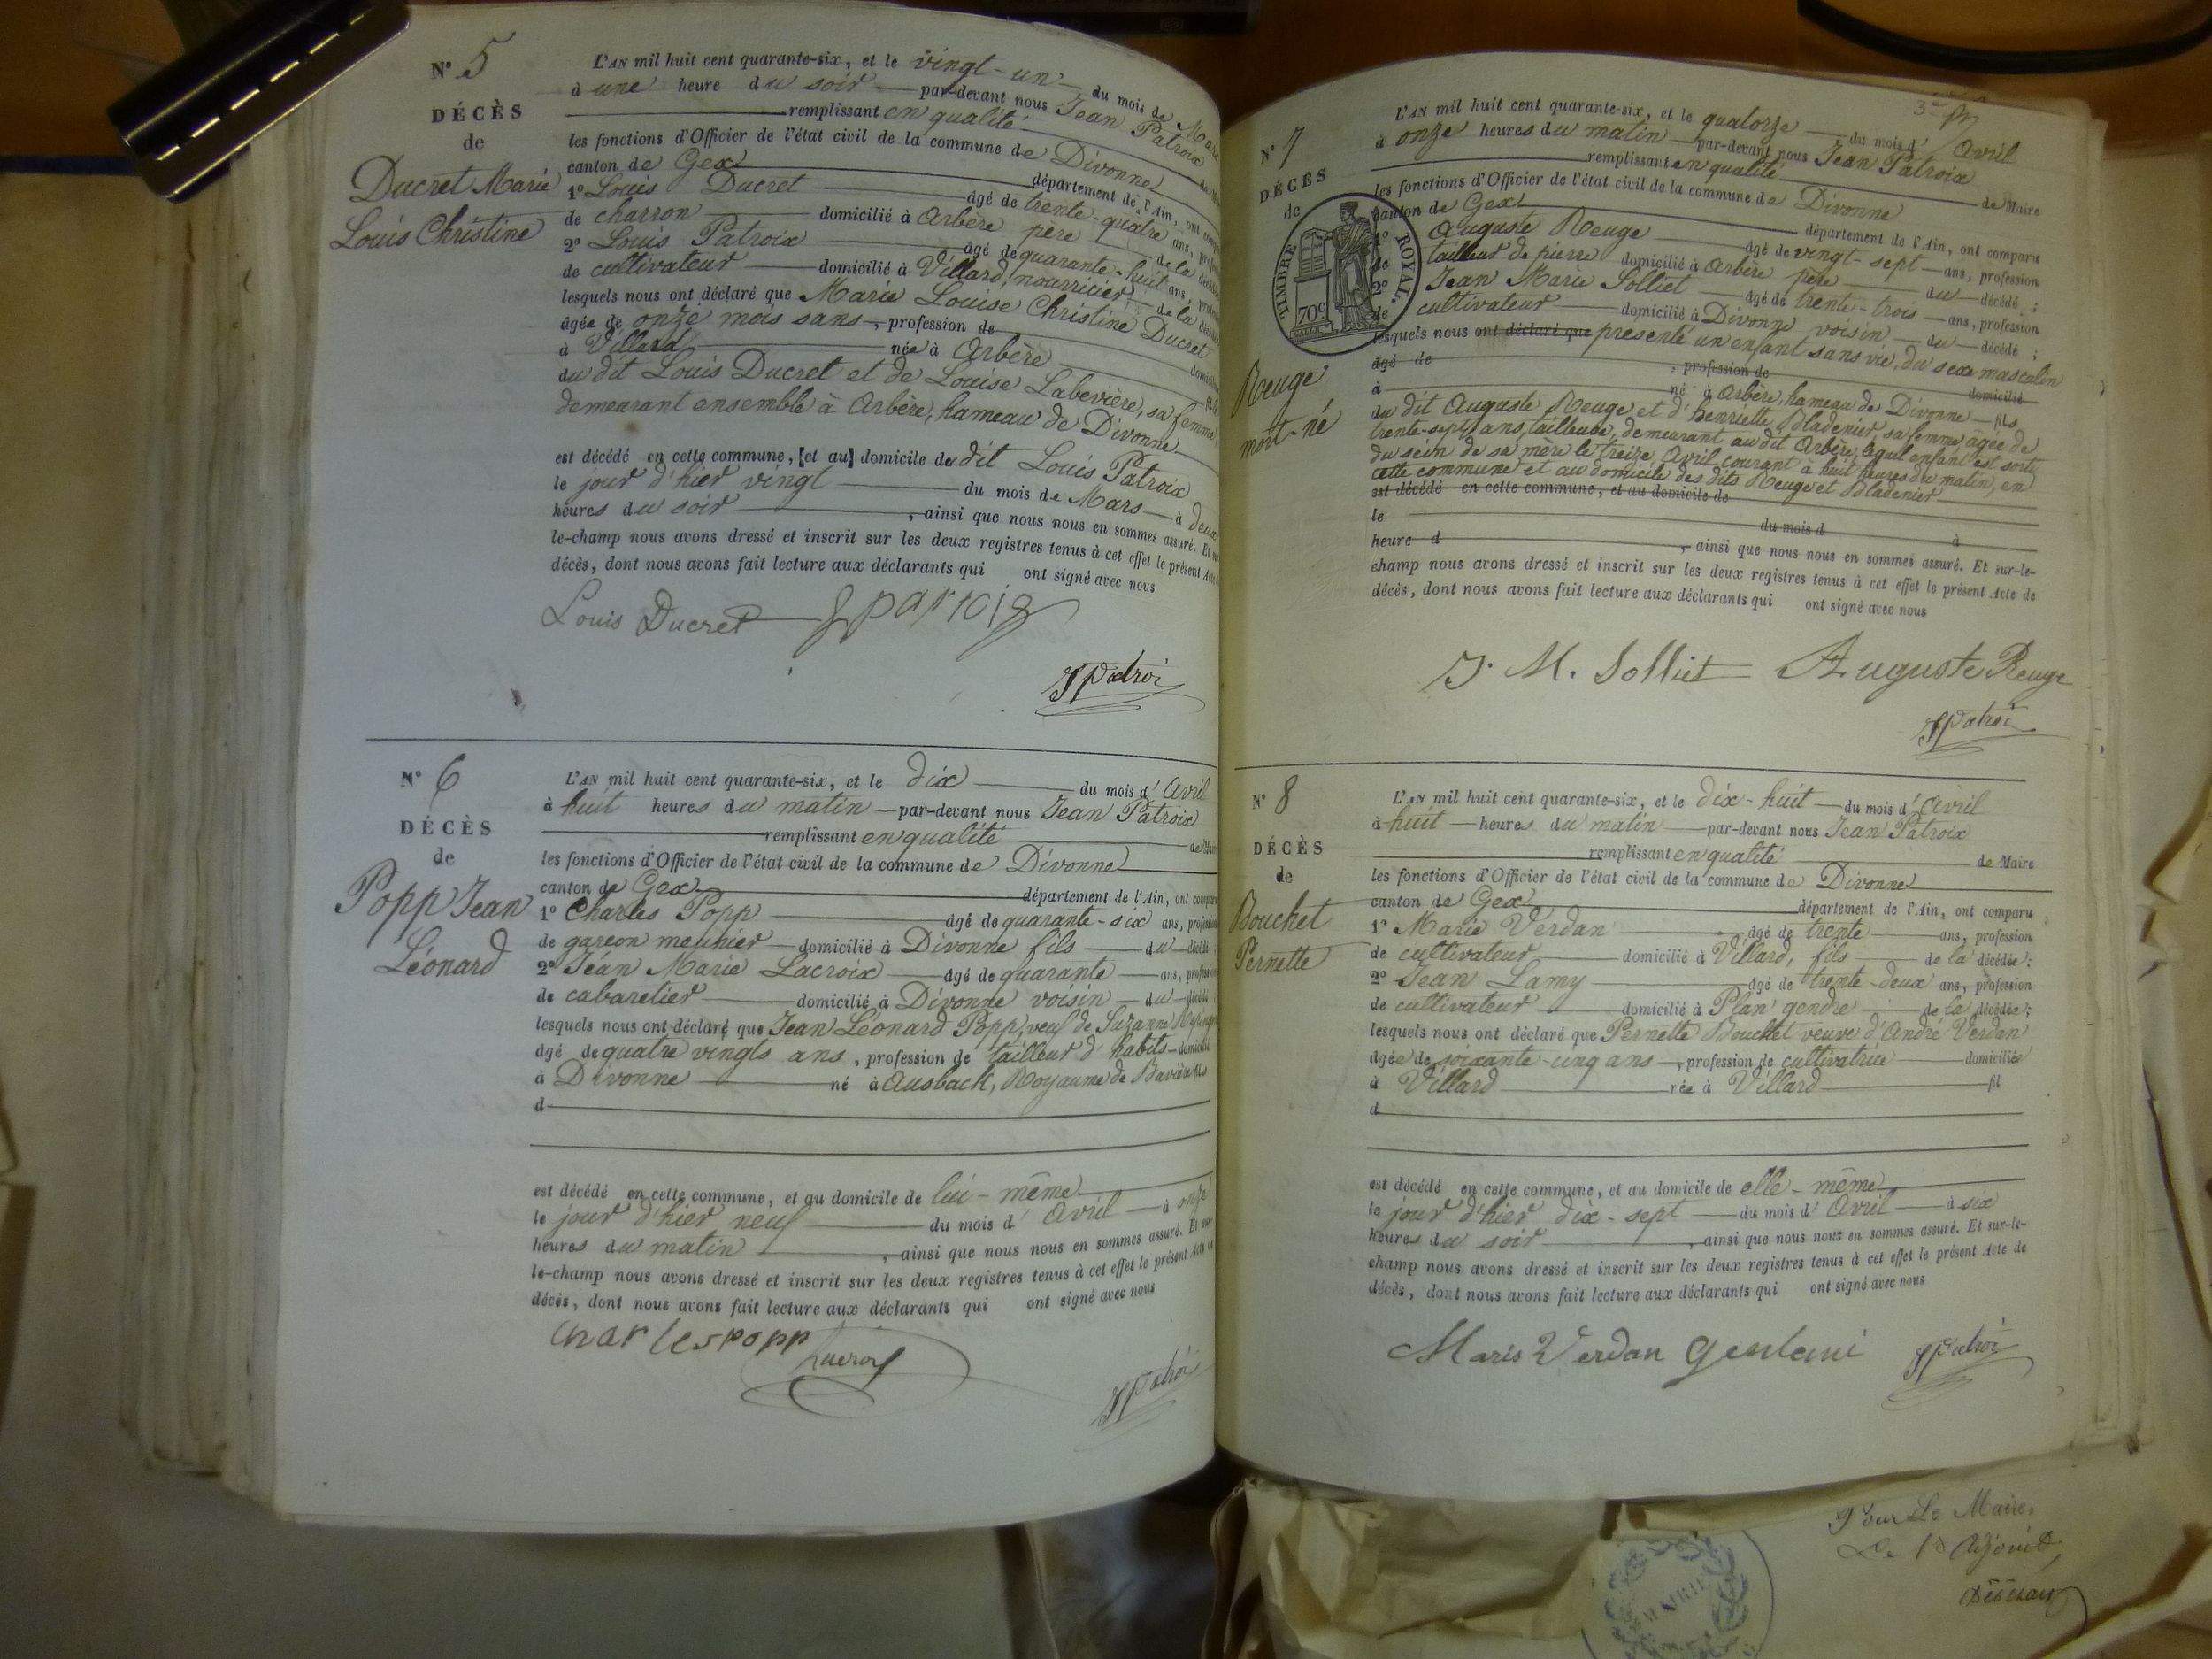 N° 5
DÉCÈS
de
Ducret Marie
Louis Christine
L'AN mil huit cent quarante-six, et le vingt-un du mois de Mars
à une heure du soir par-devant nous Jean Patroix
remplissant en qualité
les fonctions d'Officier de l'état civil de la commune de Divonne
canton de Gex département de l'Ain, ont
1° Louis Ducret âgé de trente-quatre ans,
de charron domicilié à Arbère père de la
2° Louis Patroix âgé de quarante-huit ans,
de cultivateur domicilié à Villard, nourricier de la
lesquels nous ont déclaré que Marie Louise Christine Ducret
âgée de onze mois sans, profession de
à Villard née à Arbère
du dit Louis Ducret et de Louise Labevière, sa femme
demeurant ensemble à Arbère, hameau de Divonne
est décédé en cette commune, [et au] domicile du dit Louis Patroix
le jour d'hier vingt du mois de Mars à deux
heures du soir, ainsi que nous nous en sommes assuré. Et
le-champ nous avons dressé et inscrit sur les deux registres tenus à cet effet le présent Acte
décès, dont nous avons fait lecture aux déclarants qui ont signé avec nous
Louis Ducret
JPatroi
N° 6
DÉCÈS
de
Popp Jean
Léonard
L'AN mil huit cent quarante-six, et le dix du mois d'Avril
à huit heures du matin par-devant nous Jean Patroix
remplissant en qualité de
les fonctions d'Officier de l'état civil de la commune de Divonne
canton de Gex département de l'Ain, ont
1° Charles Popp âgé de quarante-six ans,
de garçon meunier domicilié à Divonne fils du
2° Jean Marie Lacroix âgé de quarante ans,
de cabaretier domicilié à Divonne voisin du
lesquels nous ont déclaré que Jean Léonard Popp, veuf de Suzanne
âgé de quatre vingts ans, profession de tailleur d'habits
à Divonne né à Ausback, Royaume de Bavière fils
d
est décédé en cette commune, et au domicile de lui-même
le jour d'hier neuf du mois d'Avril à onze
heures du matin, ainsi que nous nous en sommes assuré. Et
le-champ nous avons dressé et inscrit sur les deux registres tenus à cet effet le présent Acte de
décès, dont nous avons fait lecture aux déclarants qui ont signé avec nous
Charles popp
JPatroi
N° 7
DÉCÈS
de
TIMBRE ROYAL
70c
Reuge
mort-né
L'AN mil huit cent quarante-six, et le quatorze du mois d'Avril
à onze heures du matin par-devant nous Jean Patroix
remplissant en qualité de Maire
les fonctions d'Officier de l'état civil de la commune de Divonne
canton de Gex département de l'Ain, ont comparu
1° Auguste Reuge âgé de vingt-sept ans, profession
de tailleur de pierre domicilié à Arbère père du décédé;
2° Jean Marie Solliet âgé de trente-trois ans, profession
de cultivateur domicilié à Divonne voisin du décédé;
lesquels nous ont déclaré que présenté un enfant sans vie, du sexe masculin
âgé de , profession de domicilié
à né à Arbère, hameau de Divonne fils
du dit Auguste Reuge et d'henriette Bladenier sa femme agée de
trente-sept ans, tailleuse, demeurant au dit Arbère, lequel enfant est sorti
du sein de sa mère le treize Avril courant à huit heures du matin, en
cette commune et au domicile des dits Reuge et Bladenier
est décédé en cette commune, et au domicile de
le du mois d à
heure d , ainsi que nous nous en sommes assuré. Et sur-le-
champ nous avons dressé et inscrit sur les deux registres tenus à cet effet le présent Acte de
décès, dont nous avons fait lecture aux déclarants qui ont signé avec nous
J. M. Solliet Auguste Reuge
JPatroi
N° 8
DÉCÈS
de
Bouchet
Pernette
L'AN mil huit cent quarante-six, et le dix-huit du mois d'Avril
à huit heures du matin par-devant nous Jean Patroix
remplissant en qualité de Maire
les fonctions d'Officier de l'état civil de la commune de Divonne
canton de Gex département de l'Ain, ont comparu
1° Marie Verdan âgé de trente ans, profession
de cultivateur domicilié à Villard, fils de la décédée;
2° Jean Lamy âgé de trente-deux ans, profession
de cultivateur domicilié à Plan gendre de la décédée;
lesquels nous ont déclaré que Pernette Bouchet veuve d'André Verdan
âgée de soixante-cinq ans, profession de cultivatrice domiciliée
à Villard née à Villard fil
d
est décédé en cette commune, et au domicile de elle-même
le jour d'hier dix-sept du mois d'Avril à six
heures du soir, ainsi que nous nous en sommes assuré. Et sur-le-
champ nous avons dressé et inscrit sur les deux registres tenus à cet effet le présent Acte de
décès, dont nous avons fait lecture aux déclarants qui ont signé avec nous
Marie Verdan
JPatroi
Pour Le Maire,
MAIRIE